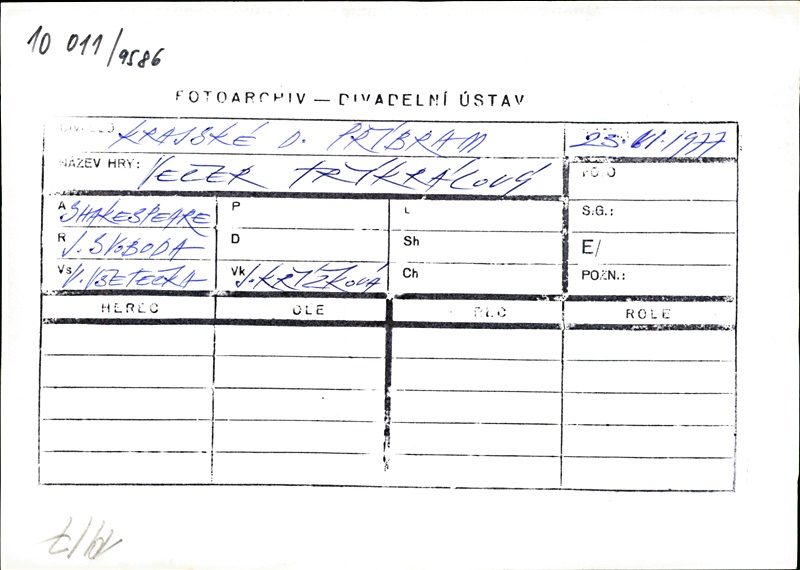 10 011/9586
FOTOARCHIV — DIVADELNÍ ÚSTAV
DIVADLO KRAJSKÉ D. PŘÍBRAM 23. VI. 1977
NÁZEV HRY: VEČER TŘÍKRÁLOVÝ FOTO
A SHAKESPEARE P L S.G.:
R J. SVOBODA D Sh E/
Vs V. VŠETEČKA Vk J. KŘÍŽKOVÁ Ch POZN.:
HEREC OLE REC ROLE